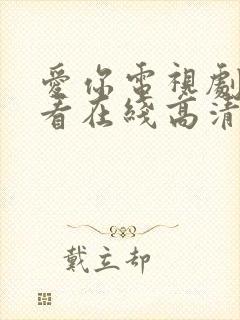 愛你電視劇
看在綫高清
戴立却